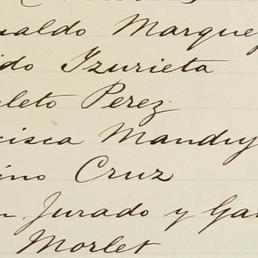 ualdo Marque
ido Izurieta
leto Perez
cisca Manduj
ino Cruz
n. Jurado y Ga
Morlet